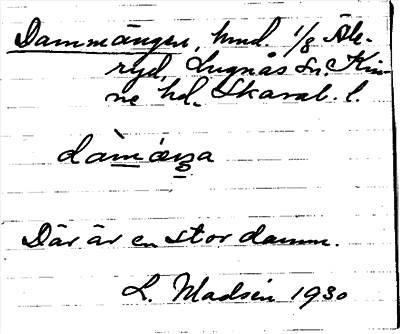 Dammängen, hmd. 1/8 Åk-
ryd, Lugnås sn. Kin-
ne hd. Skarab. l.
Där är en stor damm.
L. Madsén 1930